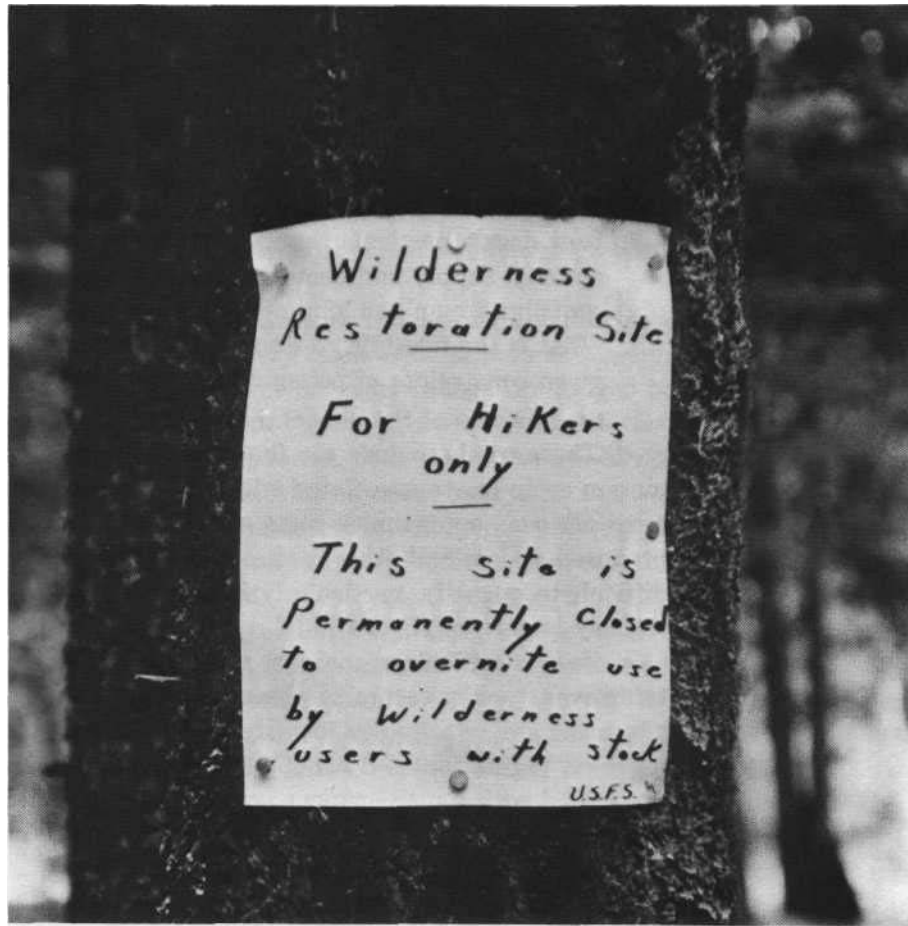 Wilderness
Restoration Site
For Hikers
only
This site is
Permanently Closed
to overnite use
by Wilderness
users with stock
U.S.F.S.